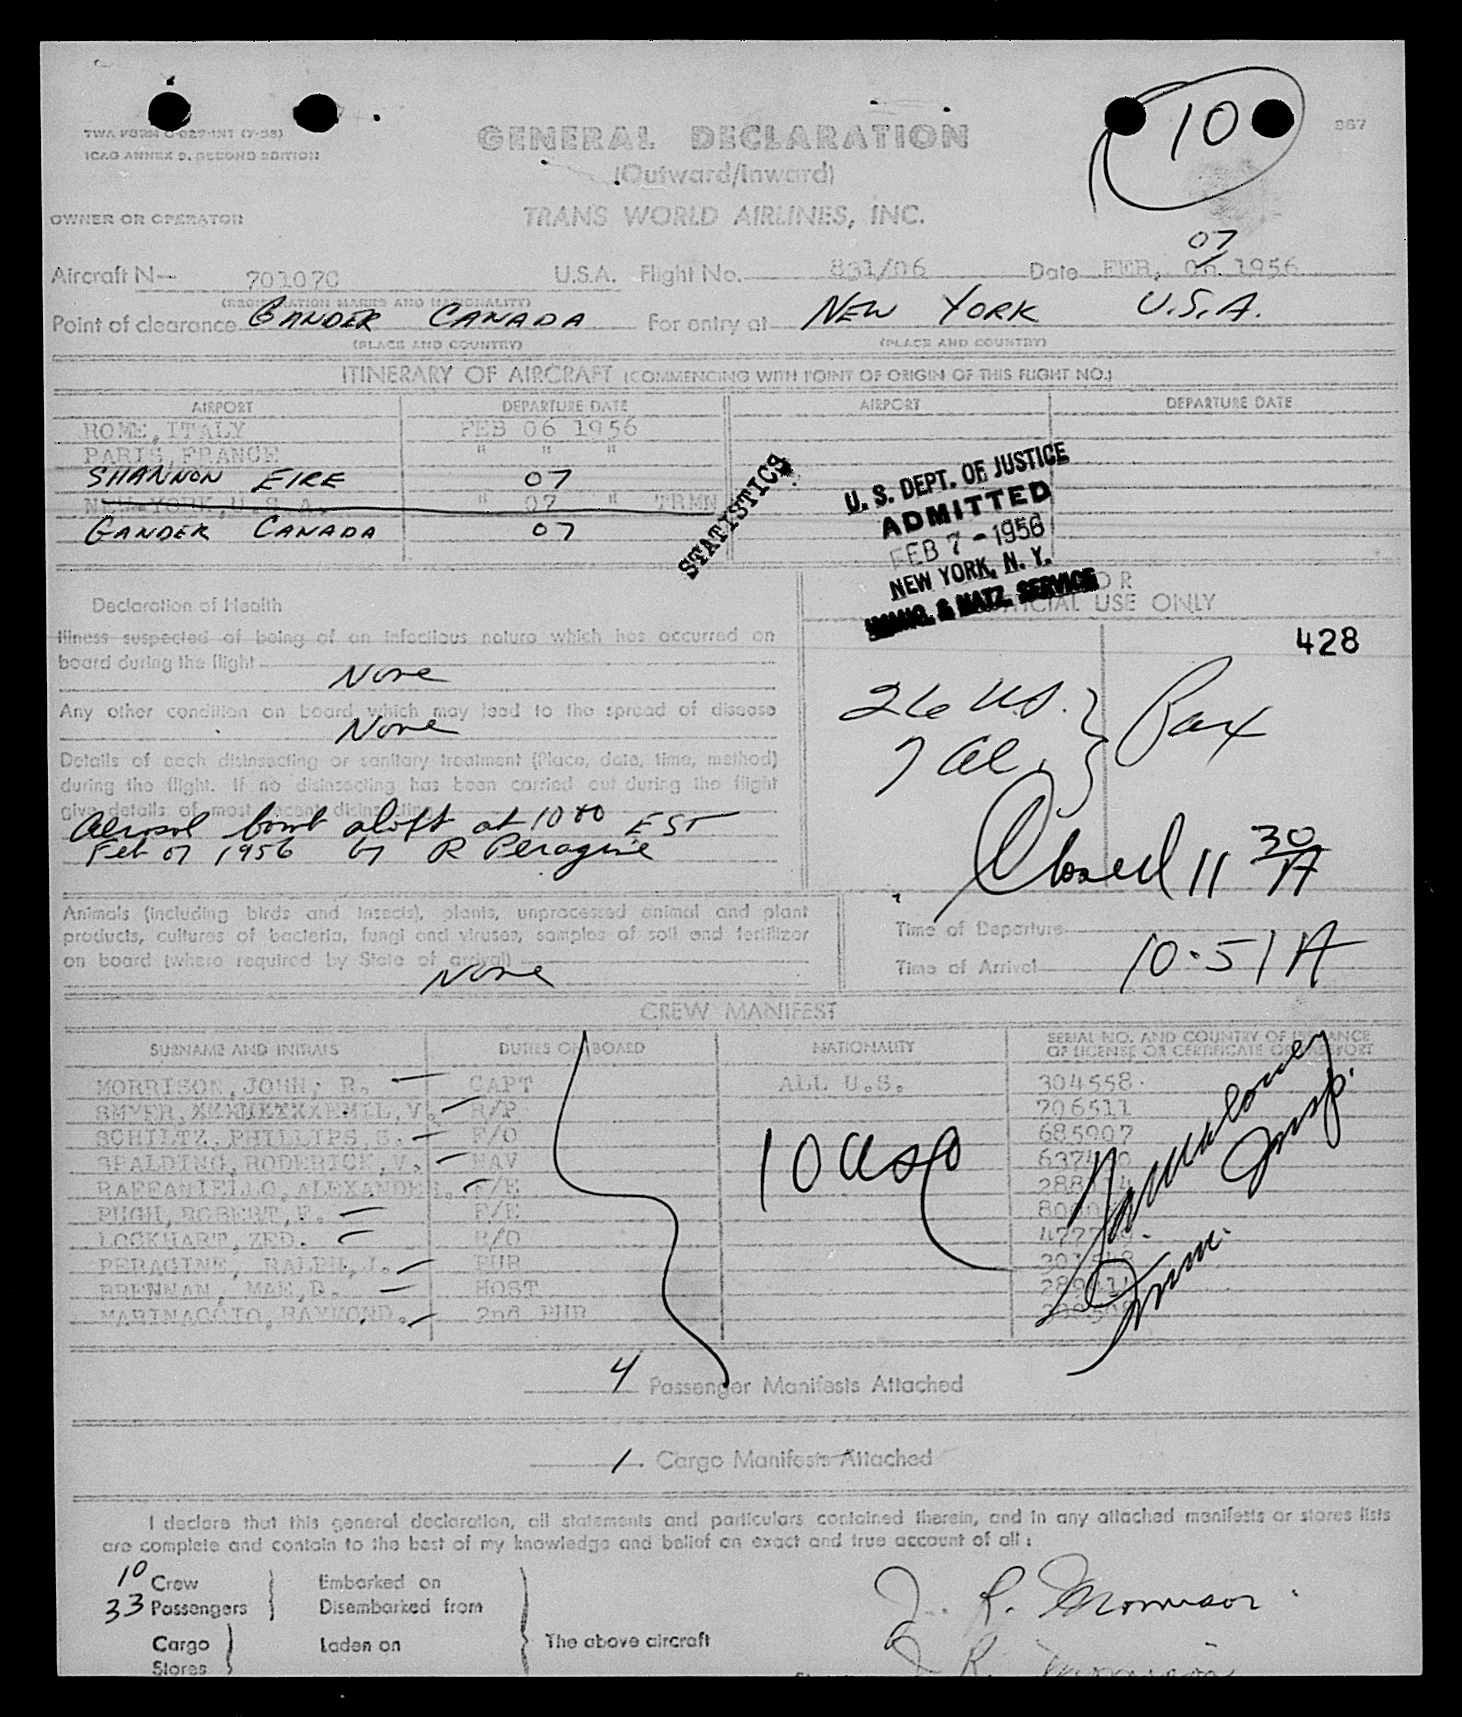 10
TWA FORM
ICAO ANNEX 9. SECOND EDITION
GENERAL DECLARATION
867
(Outward/Inward)
OWNER OR OPERATOR
TRANS WORLD AIRLINES, INC.
07
Aircraft N- 70107C U.S.A. Flight No. 831/06 Date FEB, 06 1956
(REGISTRATION MARKS AND NATIONALITY)
Point of clearance GANDER CANADA For entry at NEW YORK U.S.A.
(PLACE AND COUNTRY) (PLACE AND COUNTRY)
ITINERARY OF AIRCRAFT (COMMENCING WITH POINT OF ORIGIN OF THIS FLIGHT NO.)
AIRPORT DEPARTURE DATE AIRPORT DEPARTURE DATE
ROME, ITALY FEB 06 1956
PARIS, FRANCE " " "
SHANNON EIRE 07
NEW YORK, U.S.A. " 07 " TRMN
GANDER CANADA 07
STATISTICS
U. S. DEPT. OF JUSTICE
ADMITTED
FEB 7 - 1956
NEW YORK, N. Y.
IMMIG. & NATZ. SERVICE
FOR
OFFICIAL USE ONLY
428
Declaration of Health
Illness suspected of being of an infectious nature which has occurred on
board during the flight None
Any other condition on board which may lead to the spread of disease
None
Details of each disinsecting or sanitary treatment (Place, date, time, method)
during the flight. If no disinsecting has been carried out during the flight
give details of most recent disinsecting
Aerosol bomb aloft at 1000 EST
Feb 07 1956 by R Peragine
26 U.S. } Pax
7 Al. }
Closed 11 30/A
Animals (including birds and insects), plants, unprocessed animal and plant
products, cultures of bacteria, fungi and viruses, samples of soil and fertilizer
on board (where required by State of arrival)
None
Time of Departure
Time of Arrival 10.51 A
CREW MANIFEST
SURNAME AND INITIALS DUTIES ON BOARD NATIONALITY SERIAL NO. AND COUNTRY OF ISSUANCE
OF LICENSE OR CERTIFICATE OR PASSPORT
MORRISON, JOHN, R. — CAPT ALL U.S. 304558
SMYER, EMIL, V. — R/P 706511
SCHILTZ, PHILLIPS, S. — F/O 685907
SPALDING, RODERICK, V. — NAV
RAFFANIELLO, ALEXANDER. — F/E
PUGH, ROBERT, F. — F/E
LOCKHART, ZED. — R/O
PERAGINE, RALPH, J. — PUR
BRENNAN, MAE, D. — HOST
MARINACCIO, RAYMOND. — 2nd PUR
10 USC
Imm. Insp.
4 Passenger Manifests Attached
1 Cargo Manifests Attached
I declare that this general declaration, all statements and particulars contained therein, and in any attached manifests or stores lists
are complete and contain to the best of my knowledge and belief an exact and true account of all :
10 Crew } Embarked on
33 Passengers } Disembarked from
Cargo } Laden on } The above aircraft
Stores
J. R. Morrison
J R. Morrison